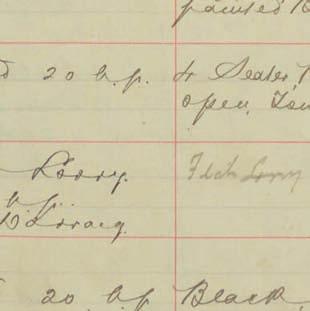 painted
20 h.p. 4 Seater,
open, Tou
Lorry. Flat Lorry
h.p.
20 h.p Black,